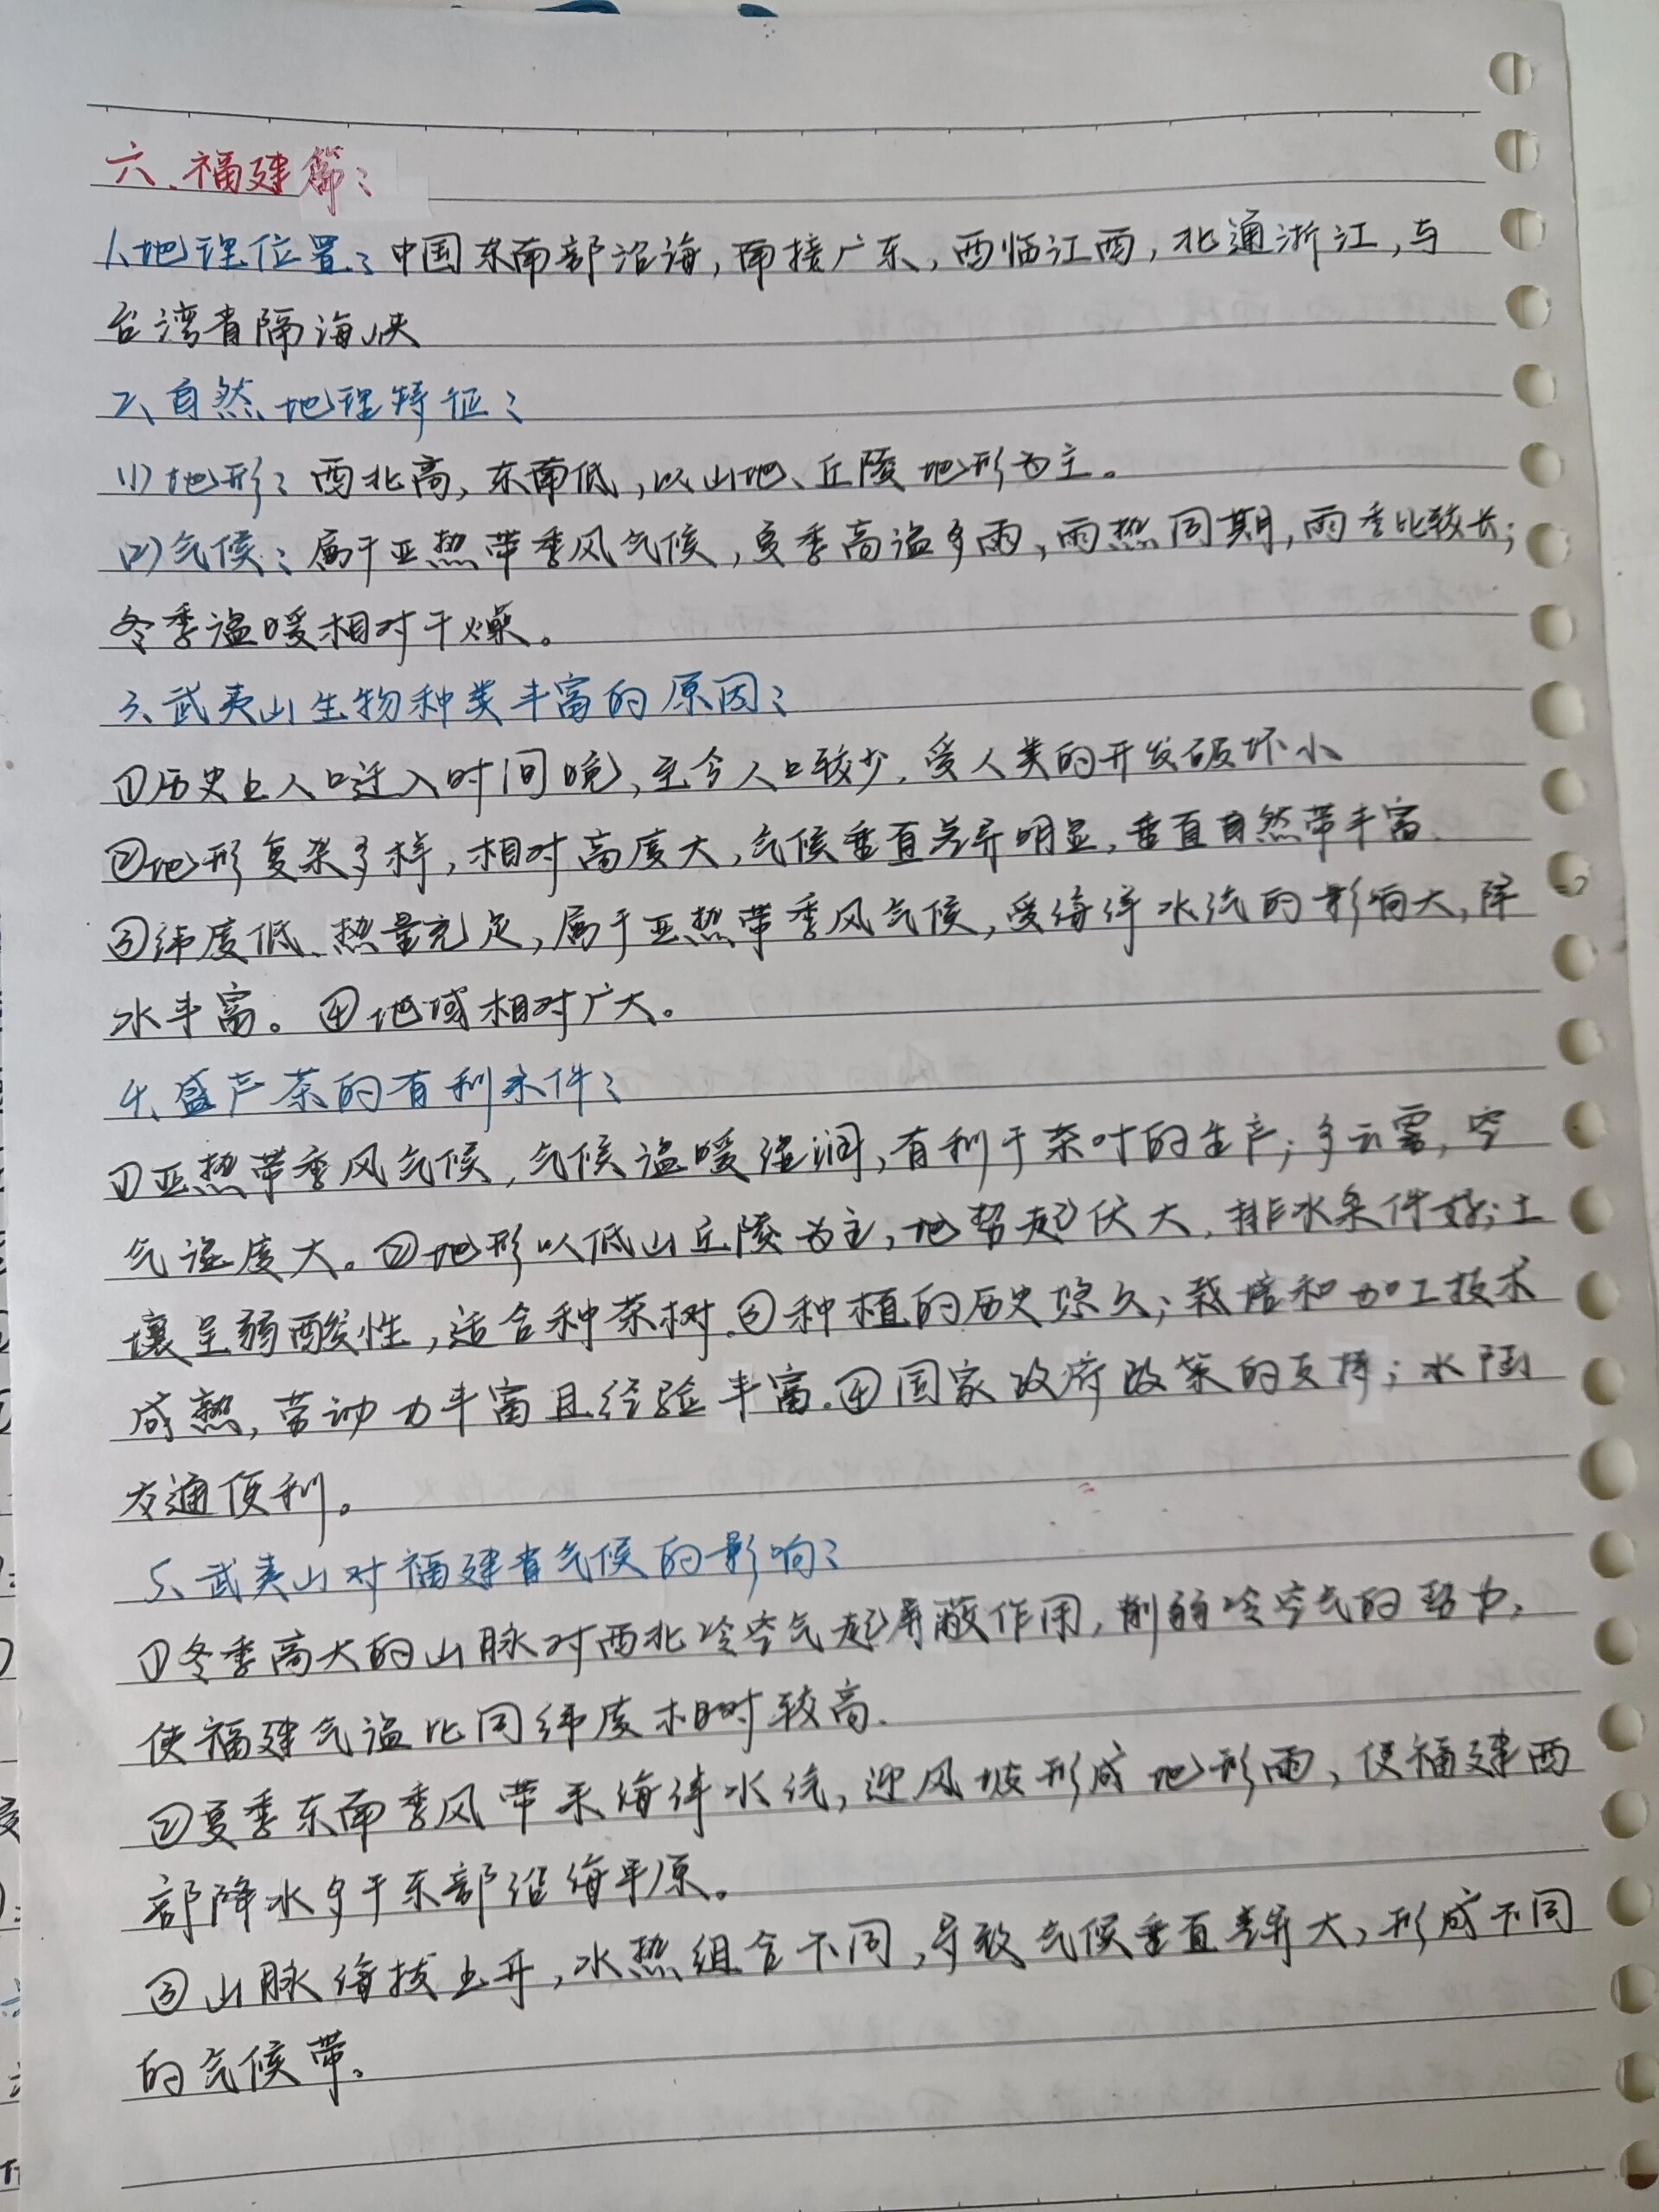 六、福建篇：
1、地理位置：中国东南部沿海，南接广东，西临江西，北通浙江，与
台湾省隔海峡
2、自然地理特征：
(1)地形：西北高，东南低，以山地、丘陵地形为主。
(2)气候：属于亚热带季风气候，夏季高温多雨，雨热同期，雨季比较长；
冬季温暖相对干燥。
3、武夷山生物种类丰富的原因：
①历史上人口迁入时间晚，至今人口较少，受人类的开发破坏小
②地形复杂多样，相对高度大，气候垂直差异明显，垂直自然带丰富.
③纬度低、热量充足，属于亚热带季风气候，受海洋水汽的影响大，降
水丰富。④地域相对广大。
4、盛产茶的有利条件：
①亚热带季风气候，气候温暖湿润，有利于茶叶的生产；多云雾，空
气湿度大。②地形以低山丘陵为主，地势起伏大，排水条件好；土
壤呈弱酸性，适合种茶树.③种植的历史悠久；栽培和加工技术
成熟，劳动力丰富且经验丰富.④国家政府政策的支持；水陆
交通便利。
5、武夷山对福建省气候的影响：
①冬季高大的山脉对西北冷空气起屏蔽作用，削弱冷空气的势力，
使福建气温比同纬度相对较高.
②夏季东南季风带来海洋水汽，迎风坡形成地形雨，使福建西
部降水多于东部沿海平原。
③山脉海拔上升，水热组合不同，导致气候垂直差异大，形成不同
的气候带。